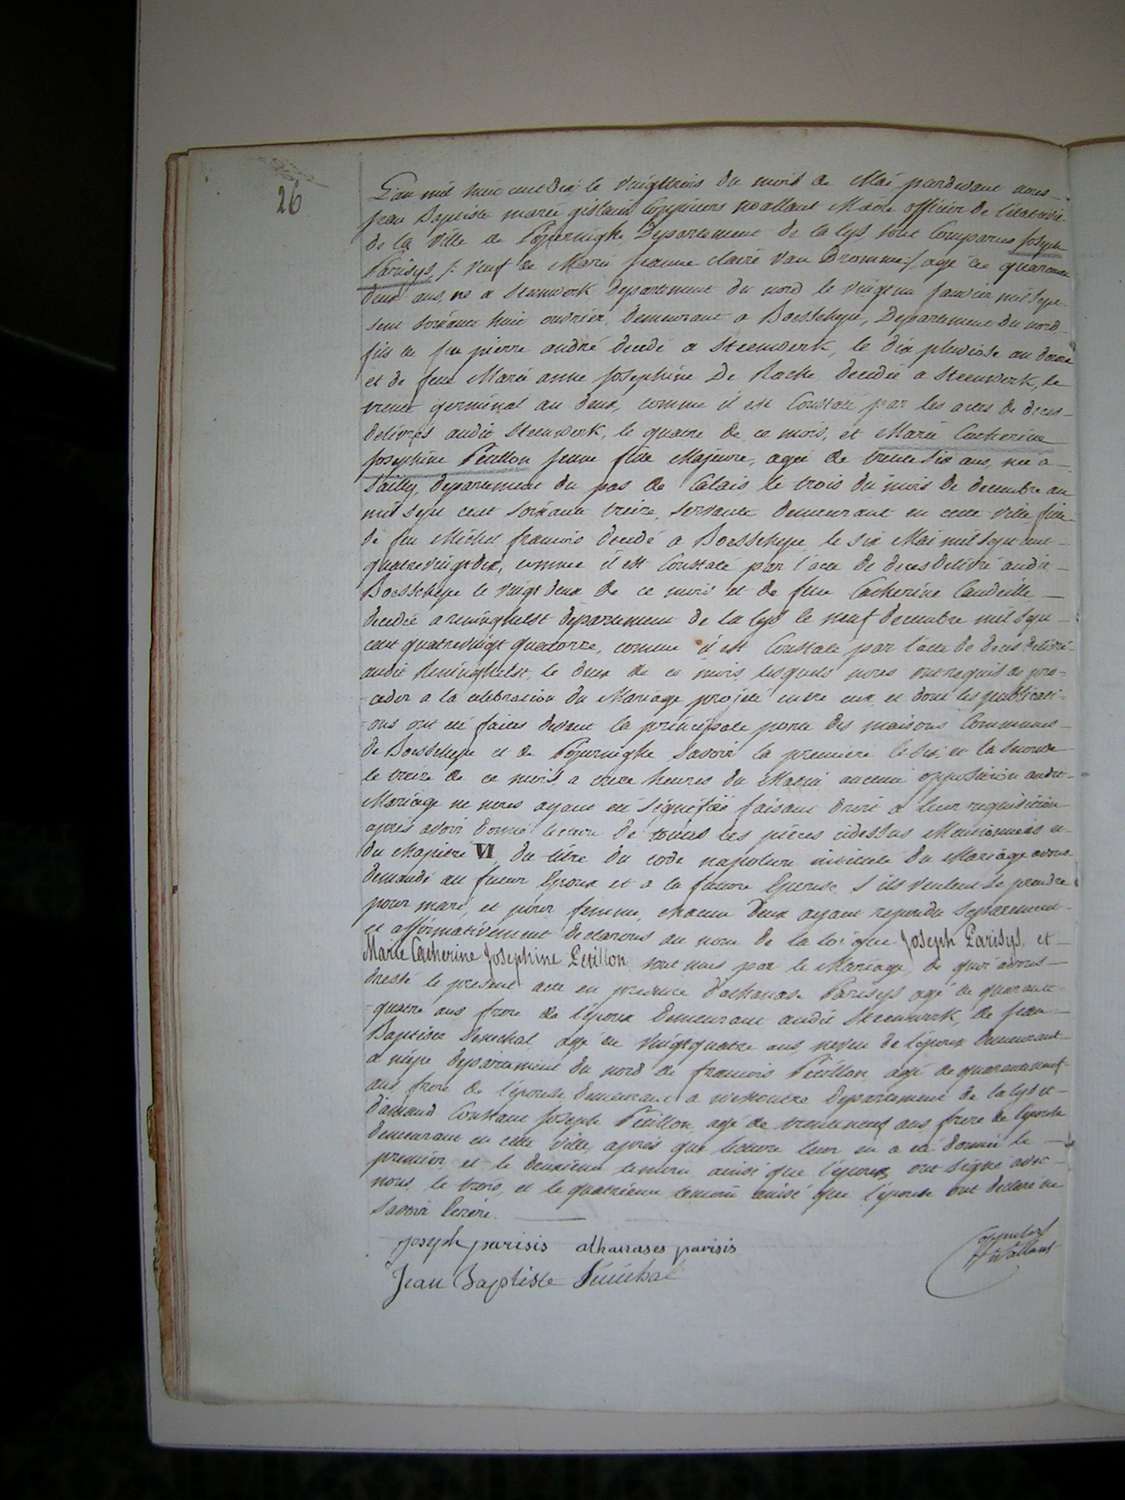 26
L'an mil huit cent dix le vingttrois du mois de Mai pardevant nous
jean Baptiste marie gislain Coppieters wallant Maire officier de l'étatcivil
de la Ville de Poperinghe Departement de la Lys sont Comparus Joseph
Parisys, /: veuf de Marie jeanne claire Van Dromme :/ agé de quarante
deux ans, né a Steenwerk departement du nord le vingt un janvier mil sept
cent soixante huit ouvrier, demeurant a Boeschepe, Departement du nord
fils de feu pierre andré decedé a steenwerk, le dix pluviose an douze
et de feue Marie anne josephine De Racke decedée a Steenwerk, le
trente germinal an deux, comme il est Constaté par les actes de deces
delivrés audit Steenwerk, le quatre de ce mois, et Marie Catherine
Josephine Petillon jeune fille Majeure, agée de trente six ans, née a
Sailly, departement du pas de Calais le trois du mois de decembre an
mil sept cent soixante treize, servante demeurant en cette ville fille
de feu Michel francois decedé a Boesschepe le six Mai mil sept cent
quatrevingt dix, comme il est Constaté par l'acte de deces delivré audit
Boesschepe le vingt deux de ce mois et de feue Catherine Caudeille
decedée a reninghelst departement de la Lys le neuf decembre mil sept
cent quatrevingt quatorze, comme il est Constaté par l'acte de deces delivré
audit Reninghelst, le deux de ce mois, lesquels nous ont requis de pro-
ceder a la celebration du Mariage projeté entre eux et dont les publicati-
ons ont été faites devant la principale porte des maisons Communes
de Boesschepe et de Poperinghe savoir la premiere le six, et la seconde
le treize de ce mois, a onze heures du Matin aucune opposition audit
Mariage ne nous ayant été signifiée faisant droit a leur requisition
après avoir donné lecture de toutes les pièces cidessus Mentionnées et
du chapitre VI du titre du code napoleon intitulé du Mariage avons
demandé au futur Epoux et a la future Epouse, s'ils veulent se prendre
pour mari, et pour femme, chacun d'eux ayant repondu separement
et affirmativement declarons au nom de la loi que Joseph Parisys, et
Marie Catherine Josephine Petillon, sont unis par le Mariage, de quoi avons
dressé le present acte en presence d'athanase Parisys agé de quarante
quatre ans frere de l'époux demeurant audit Steenwerk, de jean
Baptiste Senechal agé de vingtquatre ans neveu de l'époux demeurant
a nieppe departement du nord de francois Petillon agé de quarante neuf
ans frere de l'épouse demeurant a westoutre departement de la Lys et
d'amand Constant Joseph Petillon, agé de trenteneuf ans frere de l'épouse
demeurant en cette Ville, après que lecture leur en a été donnée le
premier et le deuxieme temoin ainsi que l'époux, ont signé avec
nous, le trois, et le quatrieme temoin ainsi que l'épouse ont declaré ne
savoir Ecrire.
Joseph parisis athanases parisis
Jean Baptiste Sénéchal